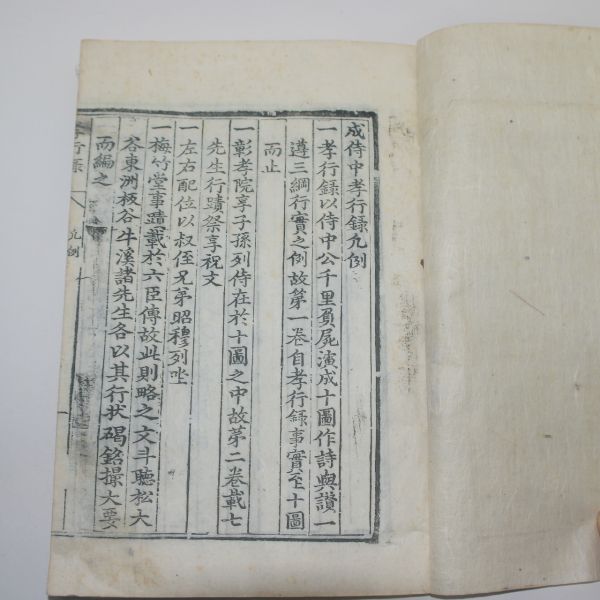 成侍中孝行録凡例
一孝行録以侍中公千里負屍演成十圖作詩與讃一
遵三綱行實之例故第一卷自孝行録事實至十圖
而止
一彰孝院享子孫列侍在於十圖之中故第二卷載七
先生行蹟祭享祝文
一左右配位以叔侄兄弟昭穆列坐
一梅竹堂事蹟載於六臣傳故此則略之文斗聽松大
谷東洲板谷牛溪諸先生各以其行狀碣銘撮大要
而編之
孝行録
凡例